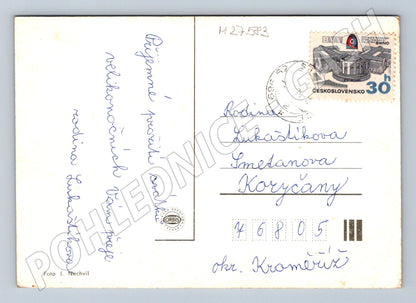 M 27583
ČESKOSLOVENSKO
30 h
Příjemné prožití svátků
velikonočních Vám přeje
rodina Lukaštíkova
Rodina
Lukaštíkova
Smetanova
Koryčany
7 6 8 0 5
okr. Kroměříž
ORBIS
Foto I. Nechvíl
POHLEDNICE